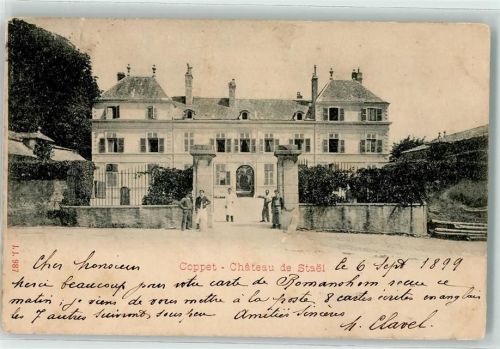 J.J. 987
Coppet - Château de Staël
le 6 Sept. 1899
Cher Monsieur
merci beaucoup pour votre carte de Romanshorn reçue ce
matin; je viens de vous mettre à la poste 8 cartes écrites en anglais
les 7 autres suivront sous peu Amitiés sincères
A. Clavel.